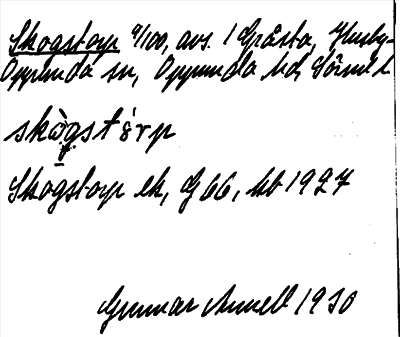 Skogstorp 9/100, avs. 1 Gråsta, Husby-
Oppunda sn, Oppunda hd, Sörml
skògstårp
Skogstorp ek, G 66, kb 1927
Gunnar Annell 1930